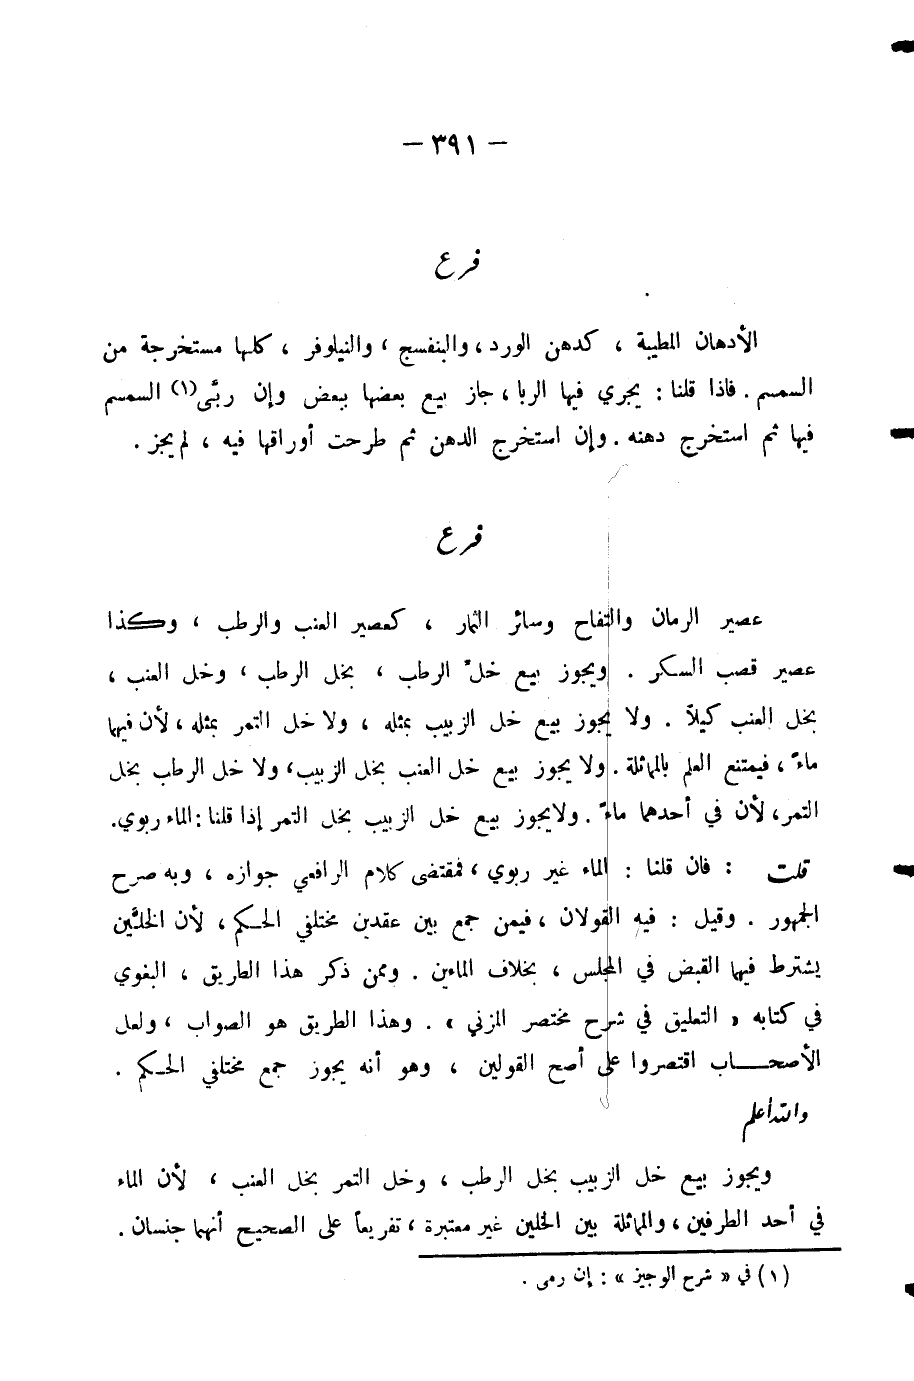 - ٣٩١ -
فرع
الأدهان المطيبة ، كدهن الورد ، والبنفسج ، والنيلوفر ، كلها مستخرجة من
السمسم . فاذا قلنا : يجري فيها الربا ، جاز بيع بعضها ببعض وإن ربَّى(١) السمسم
فيها ثم استخرج دهنه . وإن استخرج الدهن ثم طرحت أوراقها فيه ، لم يجز .
فرع
عصير الرمان والتفاح وسائر الثمار ، كعصير العنب والرطب ، وكذا
عصير قصب السكر . ويجوز بيع خلّ الرطب ، بخل الرطب ، وخل العنب ،
بخل العنب كيلاً . ولا يجوز بيع خل الزبيب بمثله ، ولا خل التمر بمثله ، لأن فيهما
ماءً ، فيمتنع العلم بالمماثلة . ولا يجوز بيع خل العنب بخل الزبيب ، ولا خل الرطب بخل
التمر ، لأن في أحدهما ماءً . ولا يجوز بيع خل الزبيب بخل التمر إذا قلنا : الماء ربوي .
قلت : فان قلنا : الماء غير ربوي ، فمقتضى كلام الرافعي جوازه ، وبه صرح
الجمهور . وقيل : فيه القولان ، فيمن جمع بين عقدين مختلفي الحكم ، لأن الخلَّين
يشترط فيها القبض في المجلس ، بخلاف الماءين . وممن ذكر هذا الطريق ، البغوي
في كتابه « التعليق في شرح مختصر المزني » . وهذا الطريق هو الصواب ، ولعل
الأصحاب اقتصروا على أصح القولين ، وهو أنه يجوز جمع مختلفي الحكم .
والله أعلم
ويجوز بيع خل الزبيب بخل الرطب ، وخل التمر بخل العنب ، لأن الماء
في أحد الطرفين ، والمماثلة بين الخلين غير معتبرة ، تفريعاً على الصحيح أنهما جنسان .
(١) في « شرح الوجيز » : إن رمى .